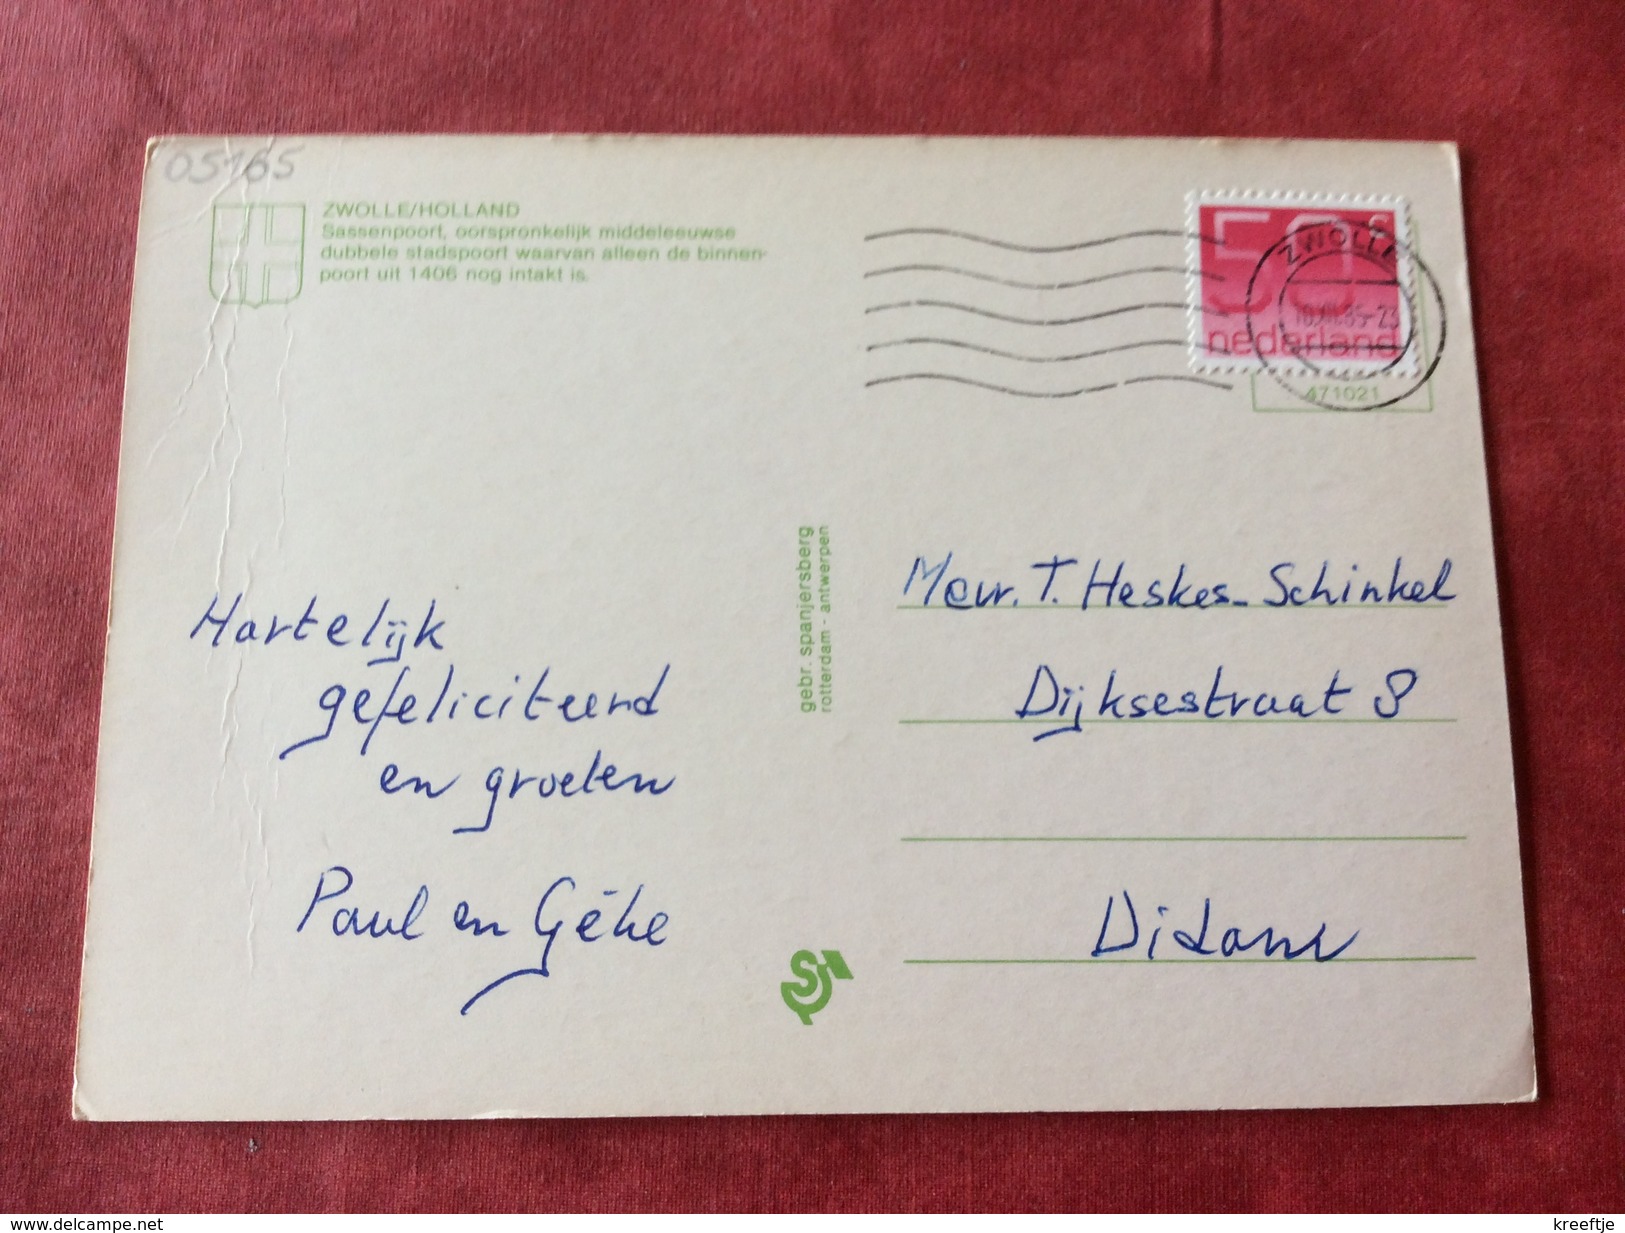 05165
ZWOLLE/HOLLAND
Sassenpoort, oorspronkelijk middeleeuwse
dubbele stadspoort waarvan alleen de binnen-
poort uit 1406 nog intakt is.
50 c
nederland
ZWOLLE
85-23
471021
gebr. spanjersberg
rotterdam - antwerpen
Hartelijk
gefeliciteerd
en groeten
Paul en
Mevr. T. Heskes-Schinkel
Dijksestraat 8
Didam
S
www.delcampe.net
kreeftje